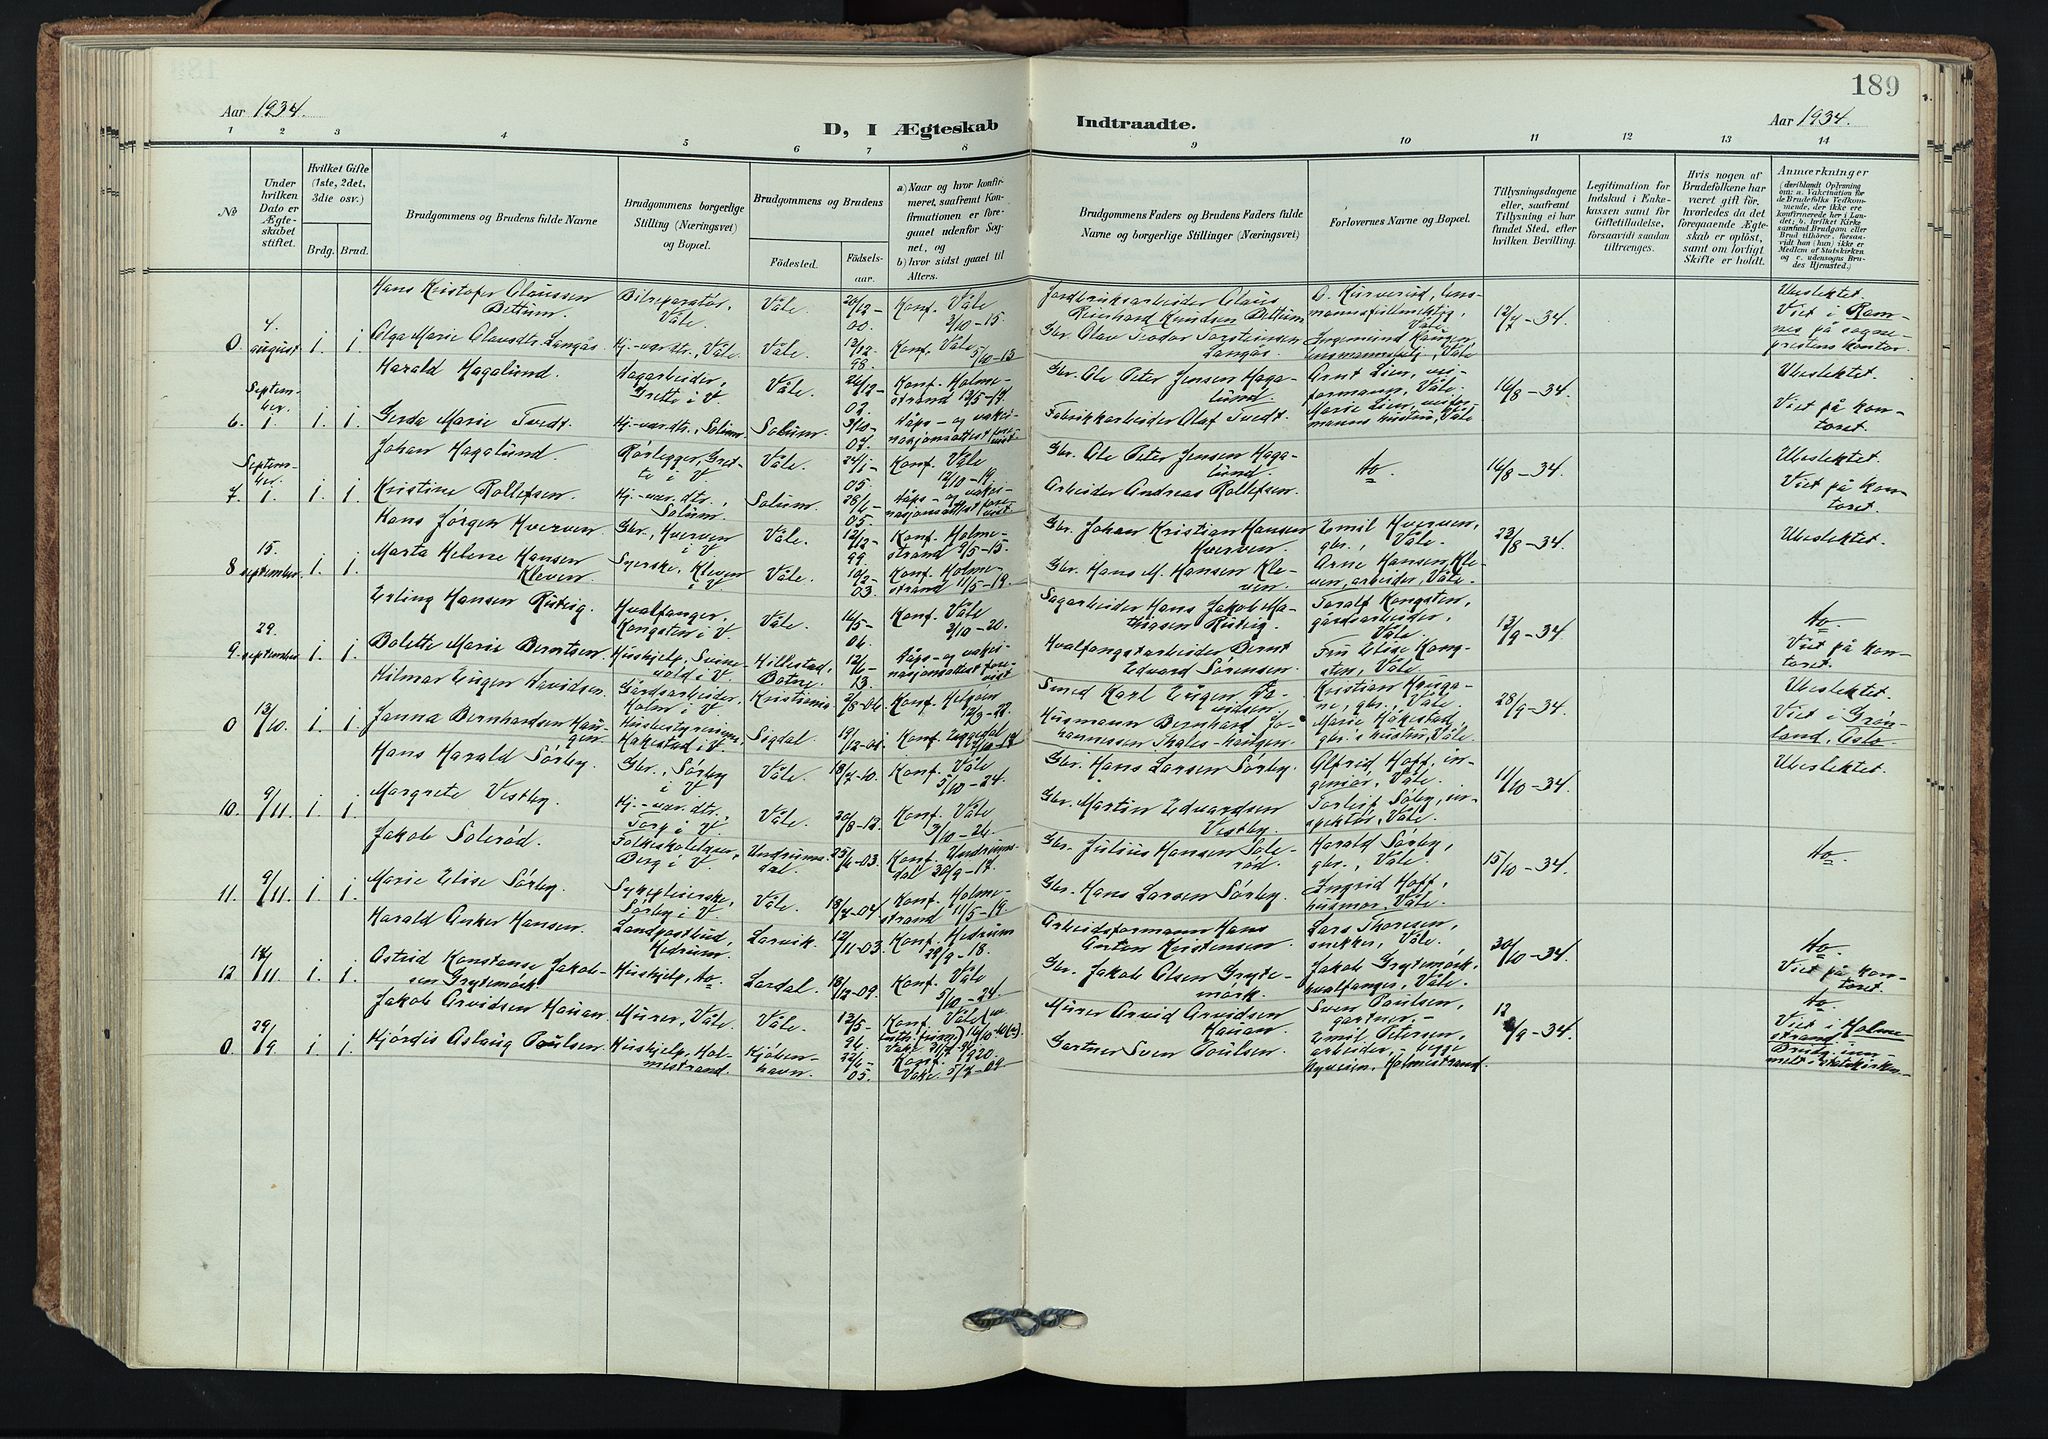 189
Aar 1934.
D, I Ægteskab
Indtraadte.
Aar 1934.
1 2 3 4 5 6 7 8 9 10 11 12 13 14
№
Under hvilken Dato er Ægteskabet stiftet.
Hvilket Gifte (1ste, 2det, 3die osv.)
Brdg. Brud.
Brudgommens og Brudens fulde Navne
Brudgommens borgerlige Stilling (Næringsvei) og Bopæl.
Brudgommens og Brudens
Fødested.
Fødselsaar.
a) Naar og hvor konfirmeret, saafremt Konfirmationen er foregaaet udenfor Sognet, og
b) hvor sidst gaaet til Alters.
Brudgommens Faders og Brudens Faders fulde Navne og borgerlige Stillinger (Næringsvei)
Forlovernes Navne og Bopæl.
Tillysningsdagene eller, saafremt Tillysning ei har fundet Sted, efter hvilken Bevilling.
Legitimation for Indskud i Enkekassen samt for Giftetilladelse, forsaavidt saadan tiltrænges.
Hvis nogen af Brudefolkene har været gift før, hvorledes da det foregaaende Ægteskab er opløst, samt om lovligt Skifte er holdt.
Anmerkninger
(deriblandt Oplysning om: a. Vakcination for de Brudefolks Vedkommende, der ikke ere konfirmerede her i Landet; b. hvilket Kirkesamfund Brudgom eller Brud tilhører, forsaavidt han (hun) ikke er Medlem af Statskirken og c. udensogns Brudes Hjemsted.)
0 4. august 1. 1.
Hans Kristofer Olaussen Bettum. Bilreparatør, Våle. Våle 20/12-00. Konf. Våle 3/10-15.
Jordbruksarbeider Olaus Reinhard Knudsen Bettum
12/7-34. Ubeslektet.
Olga Marie Olausdtr. Langås. Hj.-værdtr., Våle. Våle. 12/12 98. Konf. Våle 5/10-13
Gbr. Olav Teodor Torsteinsen Langås.
Viet i Ramnes på sogneprestens kontor.
6. September 1. 1. 1.
Harald Hagalund. Hagarbeider, Grette i V. Våle. 26/12-02. Konf. Holmestrand 13/5-17.
Gbr. Ole Peter Jensen Hagalund.
Arnt Lien, veiformann, Våle.
16/8-34. Ubeslektet.
Gerda Marie Tvedt. Hj-værdtr., Solum. Solum. 3/10-07. Dåps- og vaksinasjonsattest forevist
Fabrikkarbeider Olaf Tvedt.
Marie Lien, veiformanns hustru, Våle
Viet på kontoret.
7. September 1. 1. 1.
Johan Hagalund. Rørlegger, Grette i V. Våle. 24/1-05. Konf. Våle 12/10-19.
Gbr. Ole Peter Jensen Hagalund.
do 16/8-34. Ubeslektet.
Kristine Rollefsen. Hj-vær.dtr., Solum. Solum. 28/6-05. Dåps- og vaksinasjonsattest forevist
Arbeider Andreas Rollefsen.
Viet på kontoret.
8 15. september. 1. 1.
Hans Jørgen Hverven. Gbr., Hverven i V. Våle. 12/12-99. Konf. Holmestrand 9/5-15.
Gbr. Johan Kristian Hansen Hverven.
Emil Hverven, gbr., Våle.
22/8-34. Ubeslektet.
Marta Helene Hansen Kleven. Syerske, Kleven i V. Våle. 10/2-03. Konf. Holmestrand 11/5-19.
Gbr. Hans M. Hansen Kleven
Arne Hansen Kleven, arbeider, Våle.
9. 29. september 1. 1.
Erling Hansen Rustig. Hvalfanger, Kongsten i V. Våle. 16/5-06. Konf. Våle 3/10-20.
Sagarbeider Hans Jakob Mathisen Rustig.
Toralf Kongsten, gårdsarbeider, Våle.
13/9-34 do
Bolette Marie Berntsen. Hushjelp, Svinevold i V. Hillestad, Botne. 12/6-13. Dåps- og vaksinasjonsattest forevist
Hvalfangstarbeider Bernt Edvard Sørensen.
Fru Elise Kongsten, Våle.
Viet på kontoret.
0 13/10. 1 1
Hilmar Eugen Davidsen. Gårdsarbeider, Holm i V. Kristiania 2/8-06. Konf. Helgøen
Smed Karl Eugen Davidsen.
Kristian Haugane, gbr., Våle.
28/9-34. Ubeslektet.
Janna Bernhardsen Haugen Husbestyrerinne, Hakestad i V. Sigdal. Konf. Eggedal
Husmann Bernhard Johannessen
Marie Håkestad, gbr.s hustru, Våle.
Viet i Grønland, Oslo.
10. 9/11. 1. 1.
Hans Harald Sørby. Gbr., Sørby i V. Våle. 18/7-10. Konf. Våle 5/10-24.
Gbr. Hans Larsen Sørby.
Alfrid Hoff, ingeniør, Våle.
11/10-34. Ubeslektet.
Margrete Vestby. Hj.-vær.dtr., Torp i V. Våle. 20/8-12. Konf. Våle 3/10-26
Gbr. Martin Edvardsen Vestby.
Torleif Søby, inspektør, Våle.
11. 9/11. 1. 1.
Jakob Solerød. Folkeskolelærer, Berg i V. Undrumsdal. 25/6-03. Konf. Undrumsdal 30/9-17.
Gbr. Julius Hansen Solerød.
Harald Sørby, gbr., Våle.
15/10-34. do
Marie Elise Sørby. Sykepleierske, Sørby i V. Våle. 13/7-04 Konf. Holmestrand 11/5-19
Gbr. Hans Larsen Sørby.
Ingrid Hoff, husmor, Våle.
12 17/11 1. 1.
Harald Anker Hansen. Landpostbud, Hedrum. Larvik. 12/11-03. Konf. Hedrum 29/9-18.
Arbeidsformann Hans Anton Kristensen.
Lars Thoresen, snekker, Våle.
30/10-34. do
Astrid Konstanse Jakobsen Grytemørk Hushjelp, do. Lardal. 18/12-09. Konf. Våle 5/10-24.
Gbr. Jakob Olsen Grytemørk.
Jakob Grytemørk, hvalfanger, Våle.
Viet på kontoret.
0. 29/9 1. 1.
Jakob Arvidsen Hauan. Murer, Våle. Våle. 13/5-96. Konf. Våle
Murer Arvid Arvidsen Hauan.
Sven Paulsen, gartner,
12/9-34 do
Hjørdis Aslaug Poulsen. Hushjelp, Holmestrand. Kjøbenhavn. 22/6-05. Konf. 1920.
Gartner Sven Poulsen.
Emil Petersen, arbeider, begge Nyveien, Holmestrand.
Viet i Holmestrand